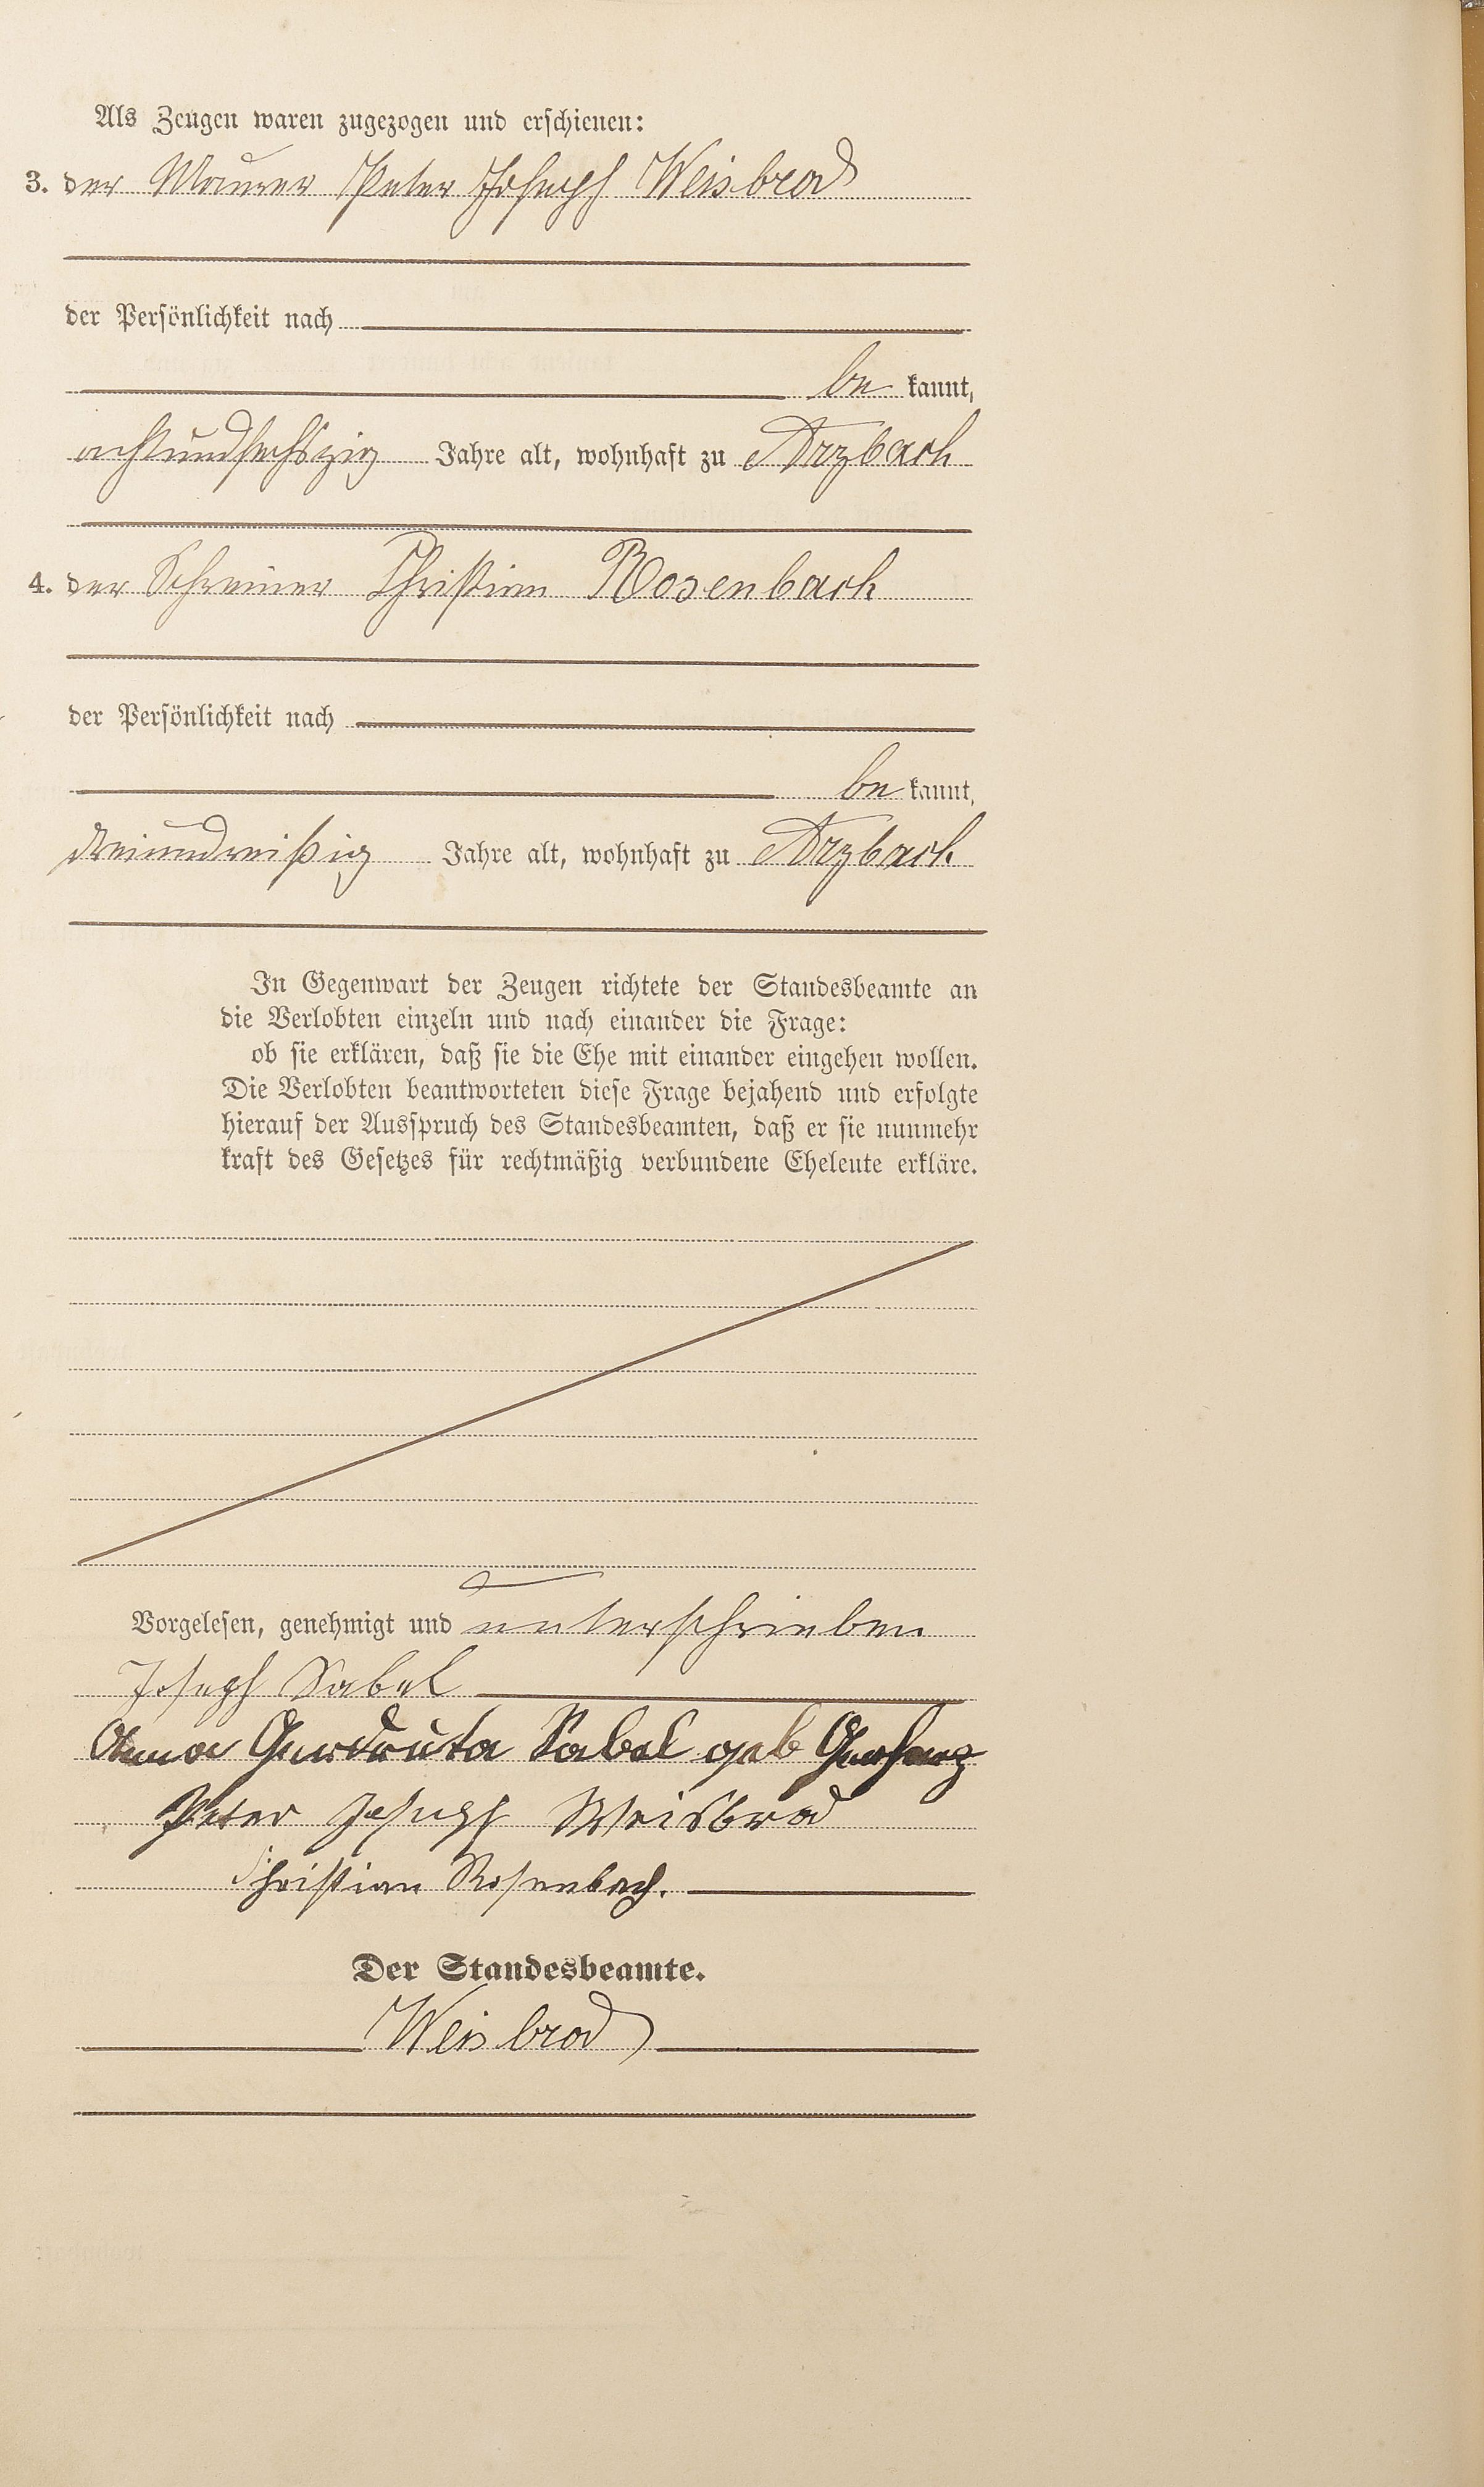 Als Zeugen waren zugezogen und erschienen:
3. der Maurer Peter Joseph Weisbrod
der Persönlichkeit nach
be kannt,
achtundsechszig Jahre alt, wohnhaft zu Arzbach
4. der Schreiner Christian Rosenbach
der Persönlichkeit nach
be kannt,
dreiundreißig Jahre alt, wohnhaft zu Arzbach
In Gegenwart der Zeugen richtete der Standesbeamte an
die Verlobten einzeln und nach einander die Frage:
ob sie erklären, daß sie die Ehe mit einander eingehen wollen.
Die Verlobten beantworteten diese Frage bejahend und erfolgte
hierauf der Ausspruch des Standesbeamten, daß er sie nunmehr
kraft des Gesetzes für rechtmäßig verbundene Eheleute erkläre.
Vorgelesen, genehmigt und unterschrieben
Joseph Sabel
Anna Gerdruta Sabel geb
Peter Joseph Weisbrod
Christian Rosenbach.
Der Standesbeamte.
Weisbrod